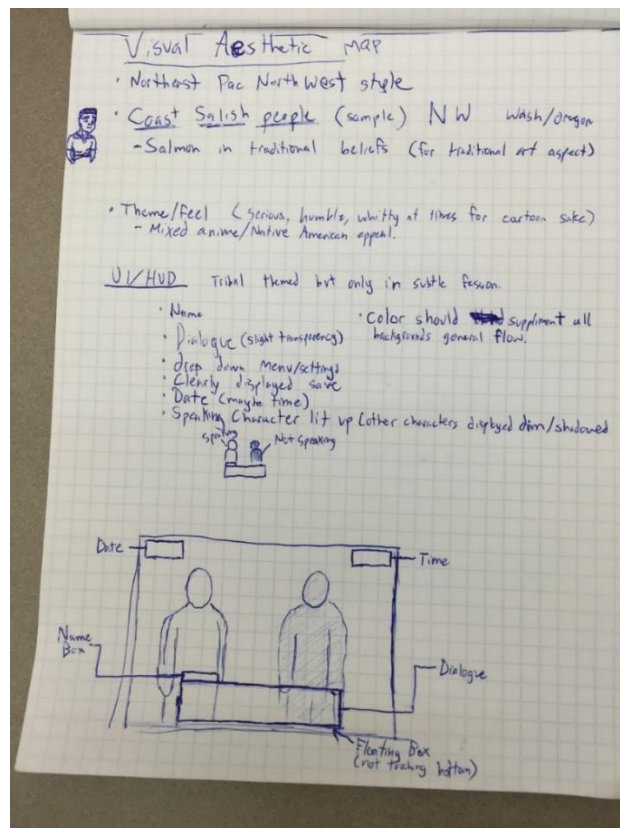 Visual Aesthetic MAP
· Northeast Pac North West style
· Coast Salish people (sample) NW Wash/oregon
- Salmon in traditional beliefs (for traditional art aspect)
· Theme/feel (serious, humble, whitty at times for cartoon sake)
- Mixed anime/Native American appeal.
UI/HUD Tribal themed but only in subtle fasuon.
· Name
· Dialogue (slight transparency)
· drop down menu/settings
· Clearly displayed save
· Date (maybe time)
· Speaking Character lit up (other characters displyed dim/shadowed
· Color should suppliment all
backgrounds general flow.
Speaking
Not Speaking
Date
Time
Name
Box
Dialogue
Floating Box
(not touching bottom)